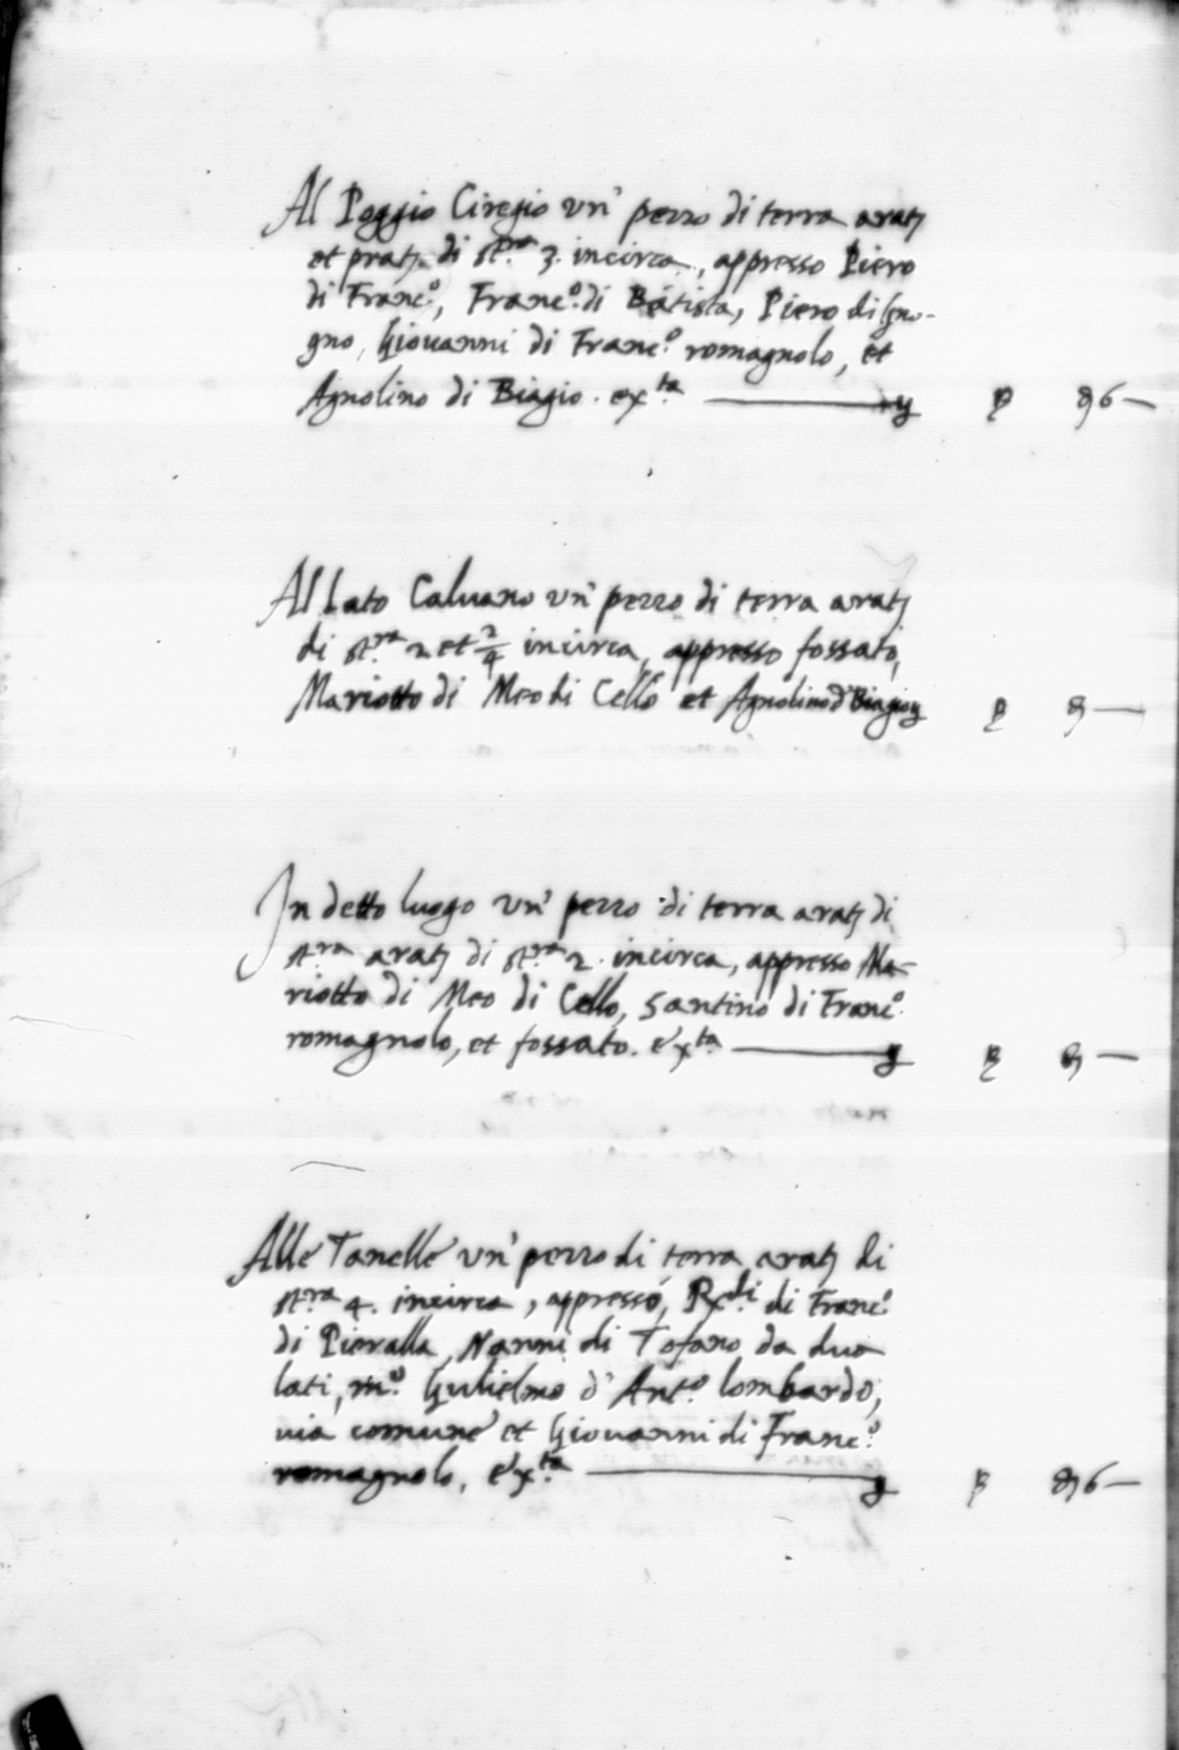 Al Poggio Ciregio un' pezzo di terra arat
et prat. di st.ra 3. incirca, appresso Piero
di Franc.o, Franc.o di Batista, Piero di Gno-
gno, Giouanni di Franc.o romagnolo, et
Agnolino di Biagio. ex.ta
Al lato Caluano un' pezzo di terra arat
di st.ra 2 et 2/4 incirca, appresso fossato,
Mariotto di Meo di Cello et Agnolino d' Biagio
In detto luogo un' pezzo di terra arat di
st.ra arat di st.ra 2. incirca, appresso Ma-
riotto di Meo di Cello, Santino di Franc.o
romagnolo, et fossato. ex.ta
Alle Tanelle un' pezzo di terra arat di
st.ra 4. incirca, appresso, Rx.di di Franc.o
di Pieralla, Nanni di Tofano da dua
lati, m.o Gulielmo d' Ant.o lombardo,
uia comune et Giouanni di Franc.o
romagnolo, ex.ta